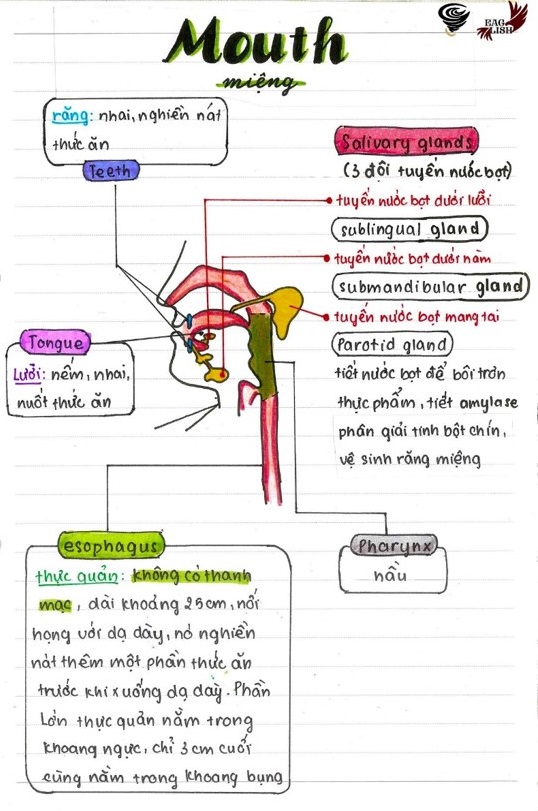 EAG
LISH
Mouth
miệng
răng: nhai, nghiền nát
thức ăn
Teeth
Salivary glands
(3 đôi tuyến nước bọt)
tuyến nước bọt dưới lưỡi
sublingual gland
tuyến nước bọt dưới hàm
submandibular gland
tuyến nước bọt mang tai
Parotid gland
tiết nước bọt để bôi trơn
thực phẩm, tiết amylase
phân giải tinh bột chín,
vệ sinh răng miệng
Tongue
Lưỡi: nếm, nhai,
nuốt thức ăn
esophagus
thực quản: không có thanh
mạc, dài khoảng 25cm, nối
họng với dạ dày, nó nghiền
nát thêm một phần thức ăn
trước khi xuống dạ dày. Phần
Lớn thực quản nằm trong
khoang ngực, chỉ 3 cm cuối
cùng nằm trong khoang bụng
Pharynx
hầu